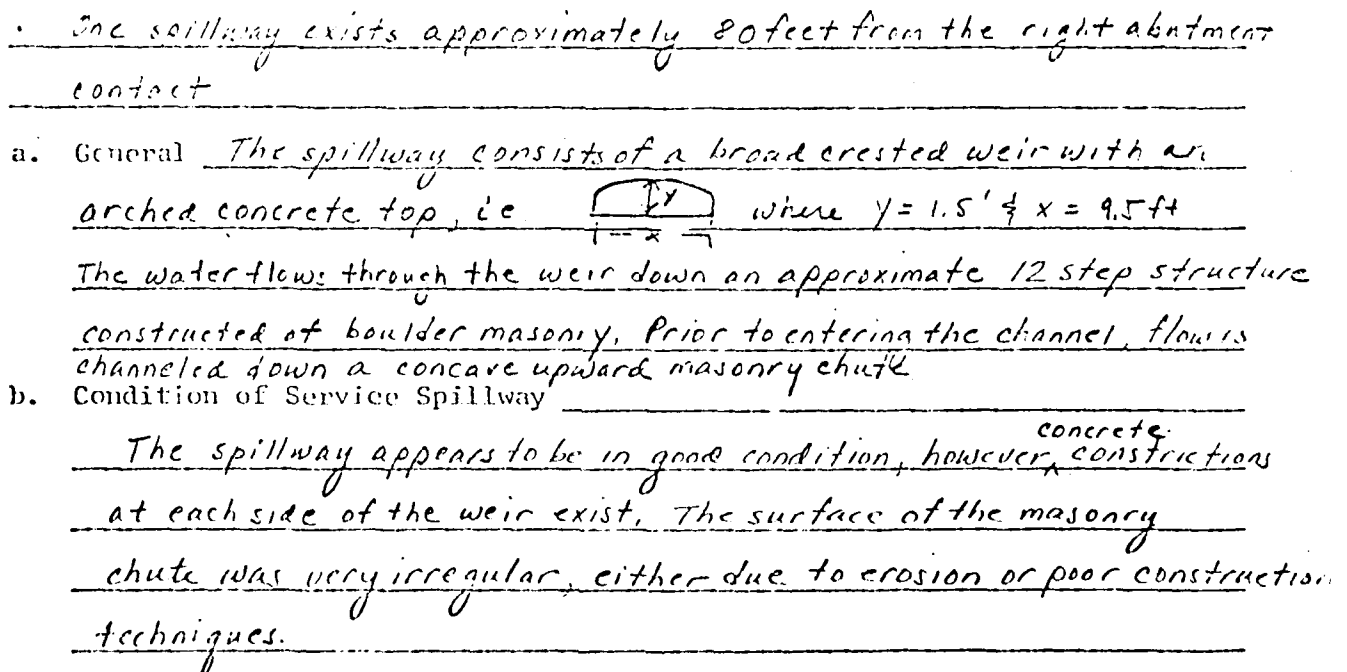 One spillway exists approximately 80 feet from the right abutment
contact
a. General The spillway consists of a broad crested weir with an
arched concrete top, ie y where y = 1.5' & x = 9.5 ft
x
The water flows through the weir down an approximate 12 step structure
constructed of boulder masonry. Prior to entering the channel, flow is
channeled down a concave upward masonry chute
b. Condition of Service Spillway
concrete
The spillway appears to be in good condition, however, constrictions
at each side of the weir exist. The surface of the masonry
chute was very irregular, either due to erosion or poor construction
techniques.